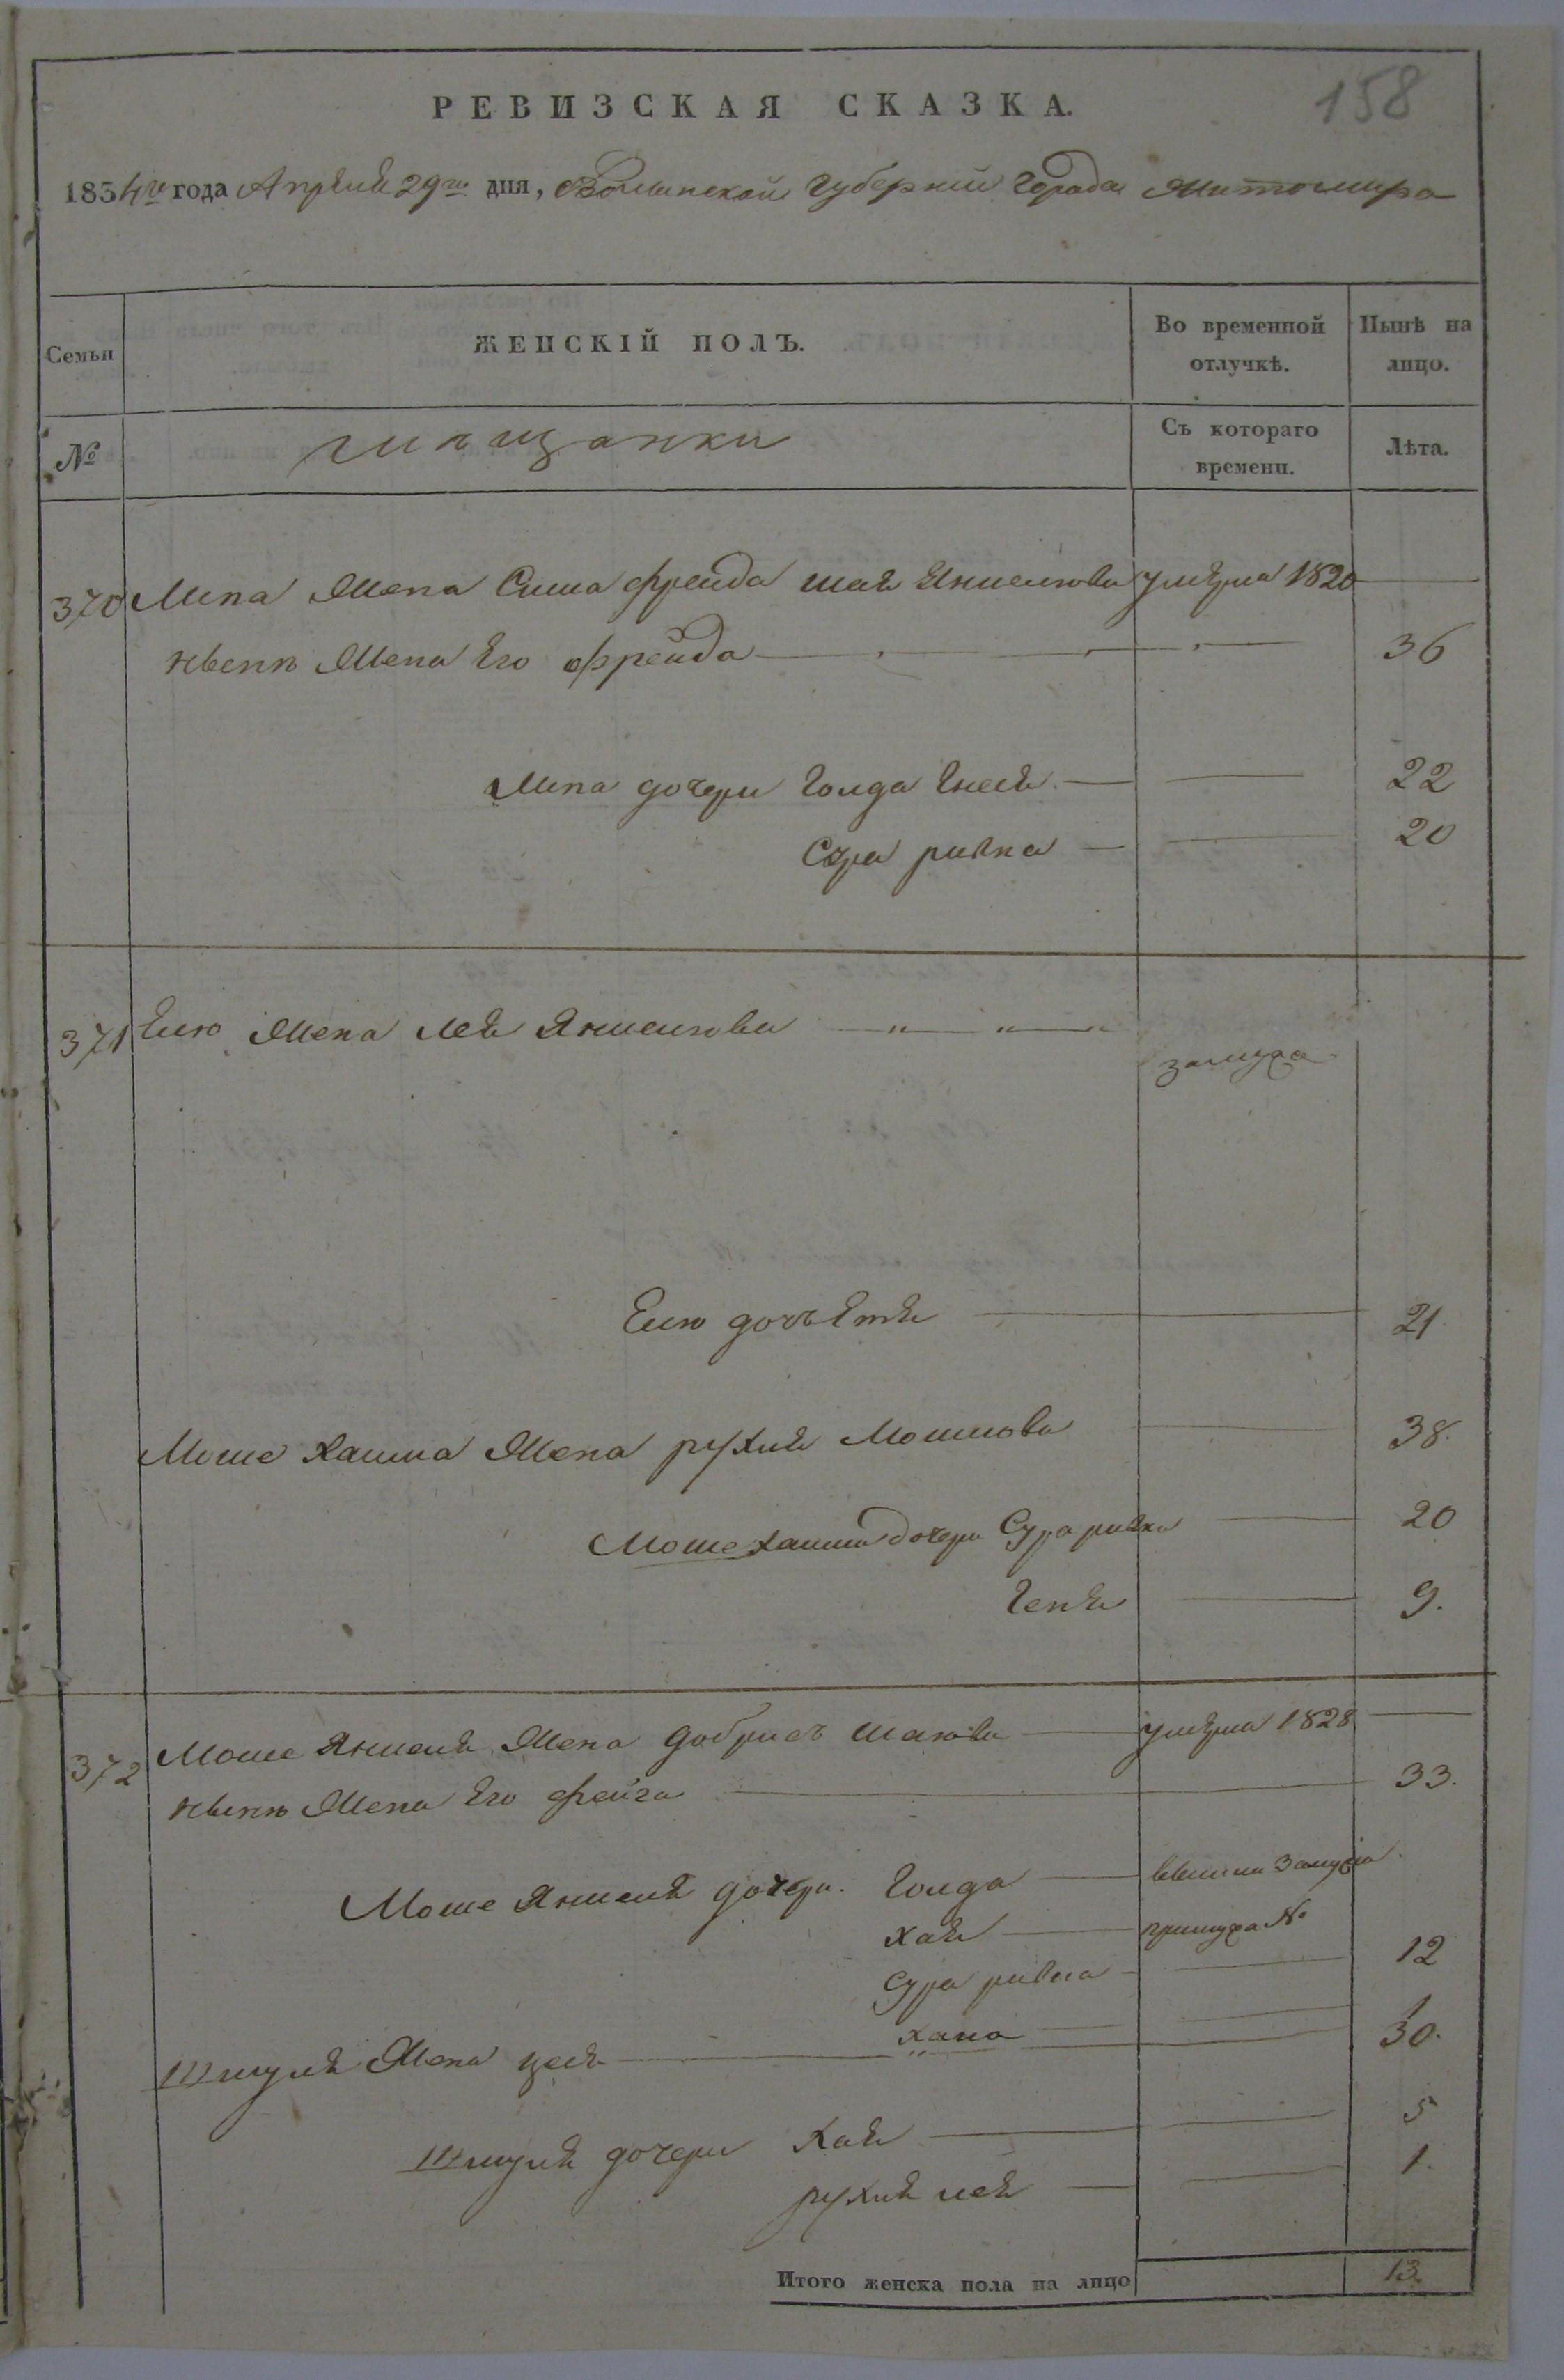 158
РЕВИЗСКАЯ СКАЗКА.
1834го года Апреля 29го дня, Волынской Губернии Города Житомира
Семьи
ЖЕНСКІЙ ПОЛЪ.
Во временной отлучкѣ.
Нынѣ на лицо.
№
мещанки
Съ котораго времени.
Лѣта.
370 Жена Сима фрейда умерла 1820
нынѣ Жена Его фрейда 36
дочери Голда Гнеся 22
Сура ривка 20
371 Елю Жена Лея Яншелѣова
замужа
Елю дочь Етя 21
Моше Хаима Жена рухля Мошкова 38.
Моше хаима дочери Сура ривка 20
Геня 9.
372 Моше Яншеля Жена добрысъ умерла 1828
нынѣ Жена Его фейга 33.
Моше Яншеля дочери. Голда вышли замужа
хая примужа №
Сура ривка 12
хана 1
Шмуля Жена цеся 30.
Шмуля дочери Хая 5
рухля лея 1.
Итого женска пола на лицо 13